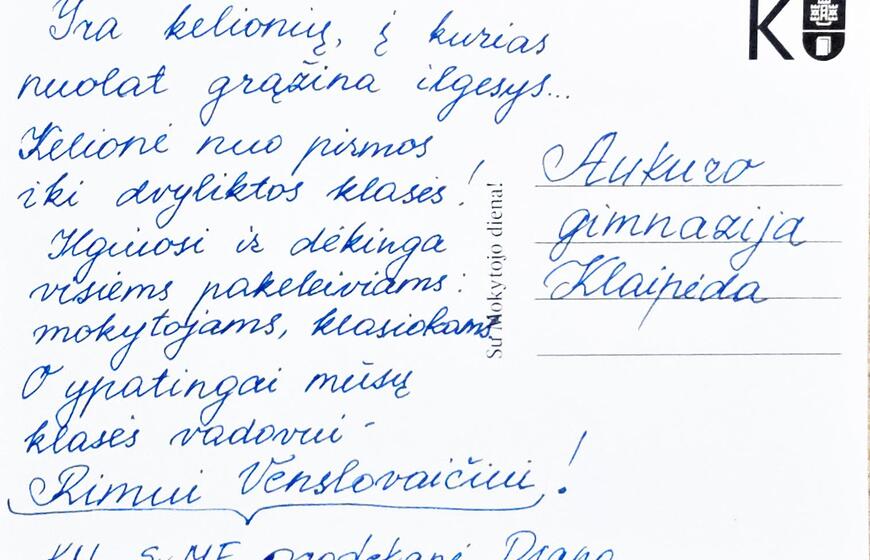 Yra kelionių, į kurias
nuolat grąžina ilgesys...
Kelionė nuo pirmos
iki dvyliktos klasės!
Ilgiuosi ir dėkinga
visiems pakeleiviams:
mokytojams, klasiokams.
O ypatingai mūsų
klasės vadovui -
Rimui Venslovaičiui!
KU
Su Mokytojo diena!
Aukuro
gimnazija
Klaipėda